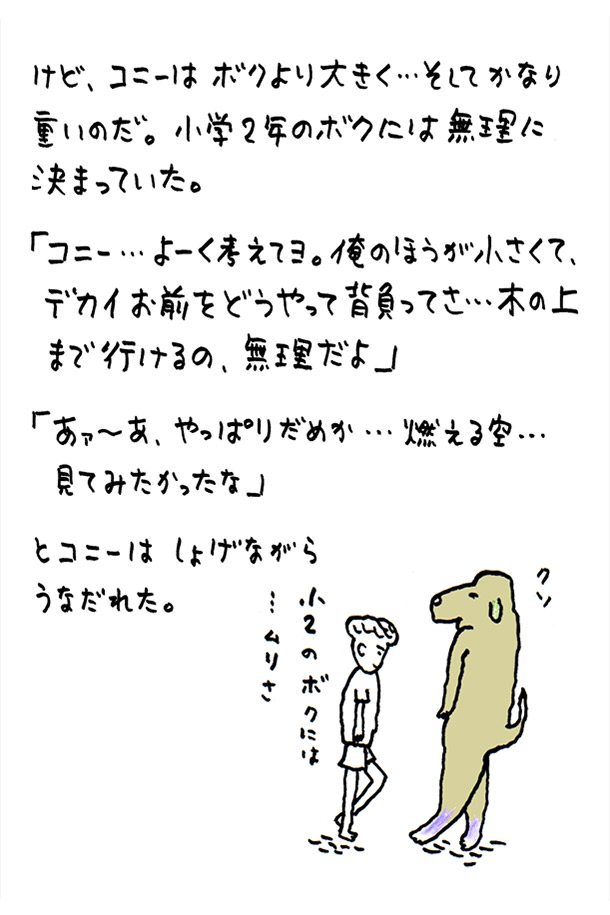 けど、コニーは ボクより大きく…そしてかなり
重いのだ。小学2年のボクには無理に
決まっていた。
「コニー…よーく考えてヨ。俺のほうが小さくて、
デカイお前をどうやって背負ってさ…木の上
まで行けるの、無理だよ」
「あァ〜あ、やっぱりだめか…燃える空…
見てみたかったな」
とコニーは しょげながら
うなだれた。
小2のボクには
…ムリさ
クソ